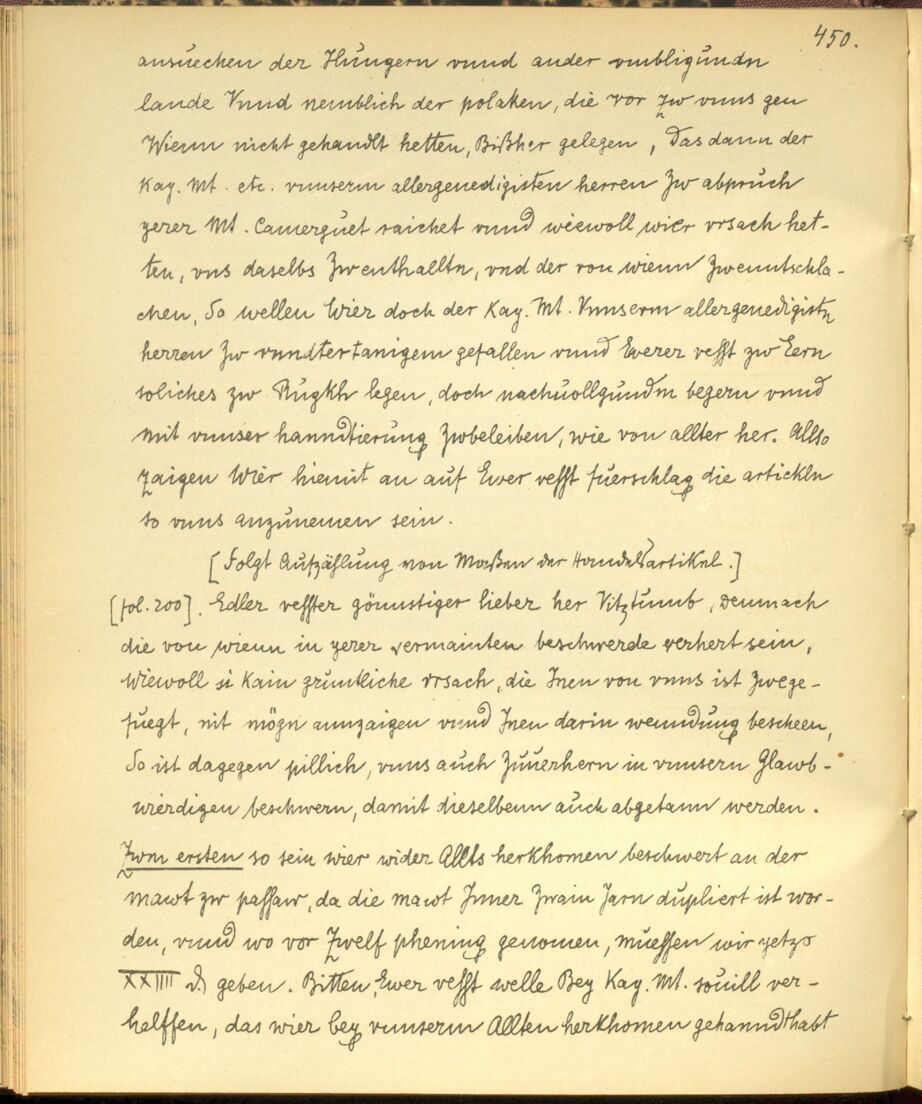 450.
ansuechen der Hungern vnnd ander vmbligundn
lande Vnnd nemblich der polaken, die vor zw vnns gen
Wienn nicht gehandlt hetten, Bißher gelegen, Das dann der
Kay. Mt. etc. vnnserm allergenedigisten herren zw abpruch
yerer Mt. Camerguet raichet vnnd wiewoll wier vrsach het-
ten, vns daselbs Zwenthalltn, vnd der von wienn Zwenntschla-
chen, So wellen Wier doch der Kay. Mt. Vnnserm allergenedigistn
herren Zw vnndtertanigem gefallen vnnd Ewerer vesst zw Eern
soliches zw Rugkh legen, doch nachuollgundm begern vnnd
mit vnnser hanndtierung Zwbeleiben, wie von allter her. Allso
zaigen Wier hiemit an auf Ewer vesst fuerschlag die artickln
so vnns anzunemen sein.
[Folgt Aufzählung von Maßen der Handelsartikel.]
[fol. 200]. Edler vesster gönnstiger lieber her Vitztumb, Demnach
die von wienn in yerer vermainten beschwerde verhert sein,
Wiewoll si kain gruntliche vrsach, die Inen von vnns ist Zwege-
fuegt, nit mögn annzaigen vnnd Inen darin wenndung bescheen,
So ist dagegen pillich, vnns auch Zuuerhern in vnnsern Glawb-
wierdigen beschwern, damit dieselbenn auch abgetann werden.
Zwm ersten so sein wier wider Allts herkhomen beschwert an der
mawt zw passaw, da die mawt Inner Zwain Jarn dupliert ist wor-
den, vnnd wo vor Zwelf phening genomen, muessen wir yetzo
XXIIII ₰ geben. Bitten, Ewer vesst welle Bey Kay. Mt. souill ver-
helffen, das wier bey vnnserm Allten herkhomen gehanndthabt